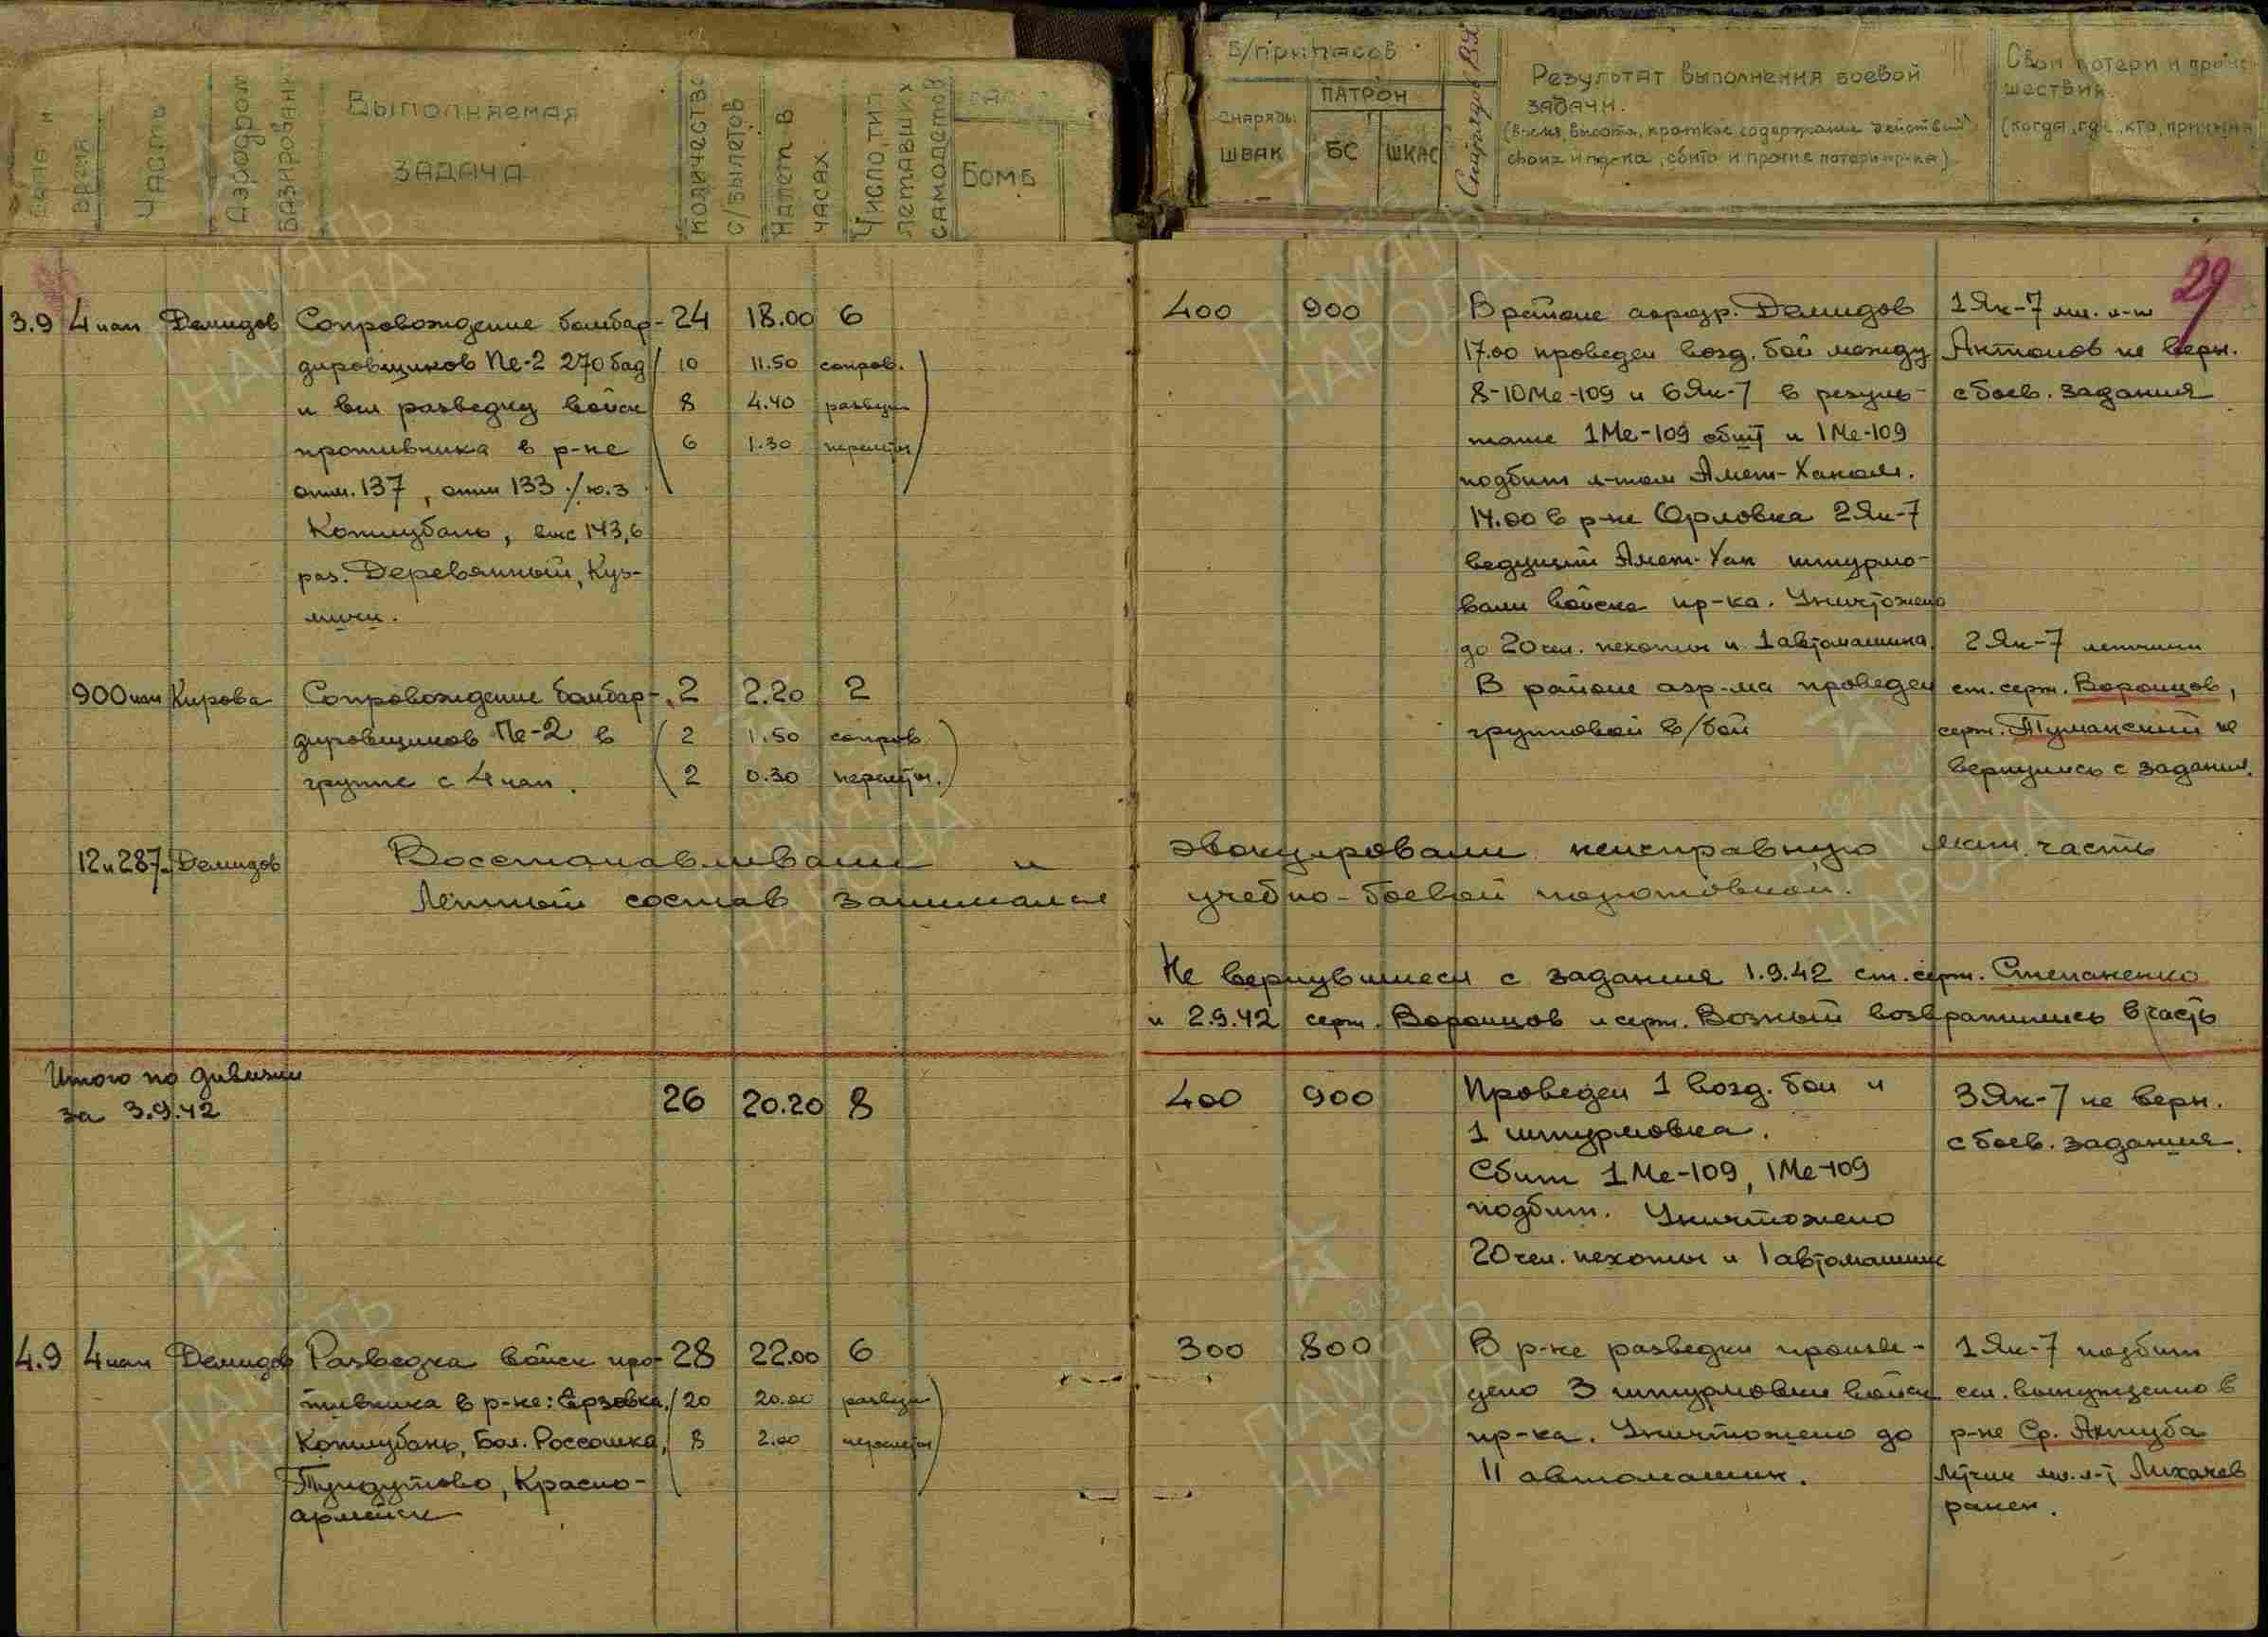 Дата и
время
Часть
Аэродром
базирования
Выполняемая
задача
количество
с/вылетов
Налет в
часах
Число, тип
летавших
самолетов
Бомб
Б/припасов
снаряды
ШВАК
ПАТРОН
БС
ШКАС
Результат выполнения боевой
задачи.
(время, высота, краткое содержание действий
своих и пр-ка, сбито и прочие потери пр-ка)
Свои потери и проис-
шествия.
(когда, где, кто, причина)
29
3.9 4 иап Демидов Сопровождение бомбар- 24 18.00 6
дировщиков Пе-2 270 бад ( 10 11.50 сопров. )
и вел разведку войск 8 4.40 разведк
противника в р-не 6 1.30 перелеты
отм. 137, отм 133./ю.з
Котлубань, выс 143,6
раз. Деревянный, Кузь-
мичи.
400 900
В районе аэродр. Демидов
17.00 проведен возд. бой между
8-10 Ме-109 и 6 Як-7 в резуль-
тате 1 Ме-109 сбит и 1 Ме-109
подбит л-том Амет-Ханом.
14.00 в р-не Орловка 2 Як-7
ведущий Амет-Хан штурмо-
вали войска пр-ка. Уничтожено
до 20 чел. пехоты и 1 автомашина.
1 Як-7 мл. л-т
Антонов не верн.
с боев. задания
900 иап Кирова Сопровождение бомбар- 2 2.20 2
дировщиков Пе-2 в ( 2 1.50 сопров )
группе с 4 иап. ( 2 0.30 перелеты. )
В районе аэр-ма проведен
групповой в/бой
2 Як-7 летчики
ст. серж. Воронцов,
серж. Туманский не
вернулись с задания.
12 и 287. Демидов Восстанавливали и эвакуировали неисправную мат. часть
Летный состав занимался учебно-боевой подготовкой.
Не вернувшиеся с задания 1.9.42 ст. серж. Степаненко
и 2.9.42 серж. Воронцов и серж. Возный возвратились в часть
Итого по дивизии
за 3.9.42
26 20.20 8
400 900
Проведен 1 возд. бой и
1 штурмовка.
Сбит 1 Ме-109, 1 Ме-109
подбит. Уничтожено
20 чел. пехоты и 1 автомашин
3 Як-7 не верн.
с боев. задания.
4.9 4 иап Демидов Разведка войск про- 28 22.00 6
тивника в р-не: Ерзовка, ( 20 20.00 разведк )
Котлубань, Бол. Россошка, 8 2.00 перелеты
Тундутово, Красно-
армейск
300 800
В р-не разведки произве-
дено 3 штурмовки войск
пр-ка. Уничтожено до
11 автомашин.
1 Як-7 подбит
сел. вынужденно в
р-не Ср. Ахтуба
Летчик мл. л-т Лихачев
ранен.
ПАМЯТЬ
НАРОДА